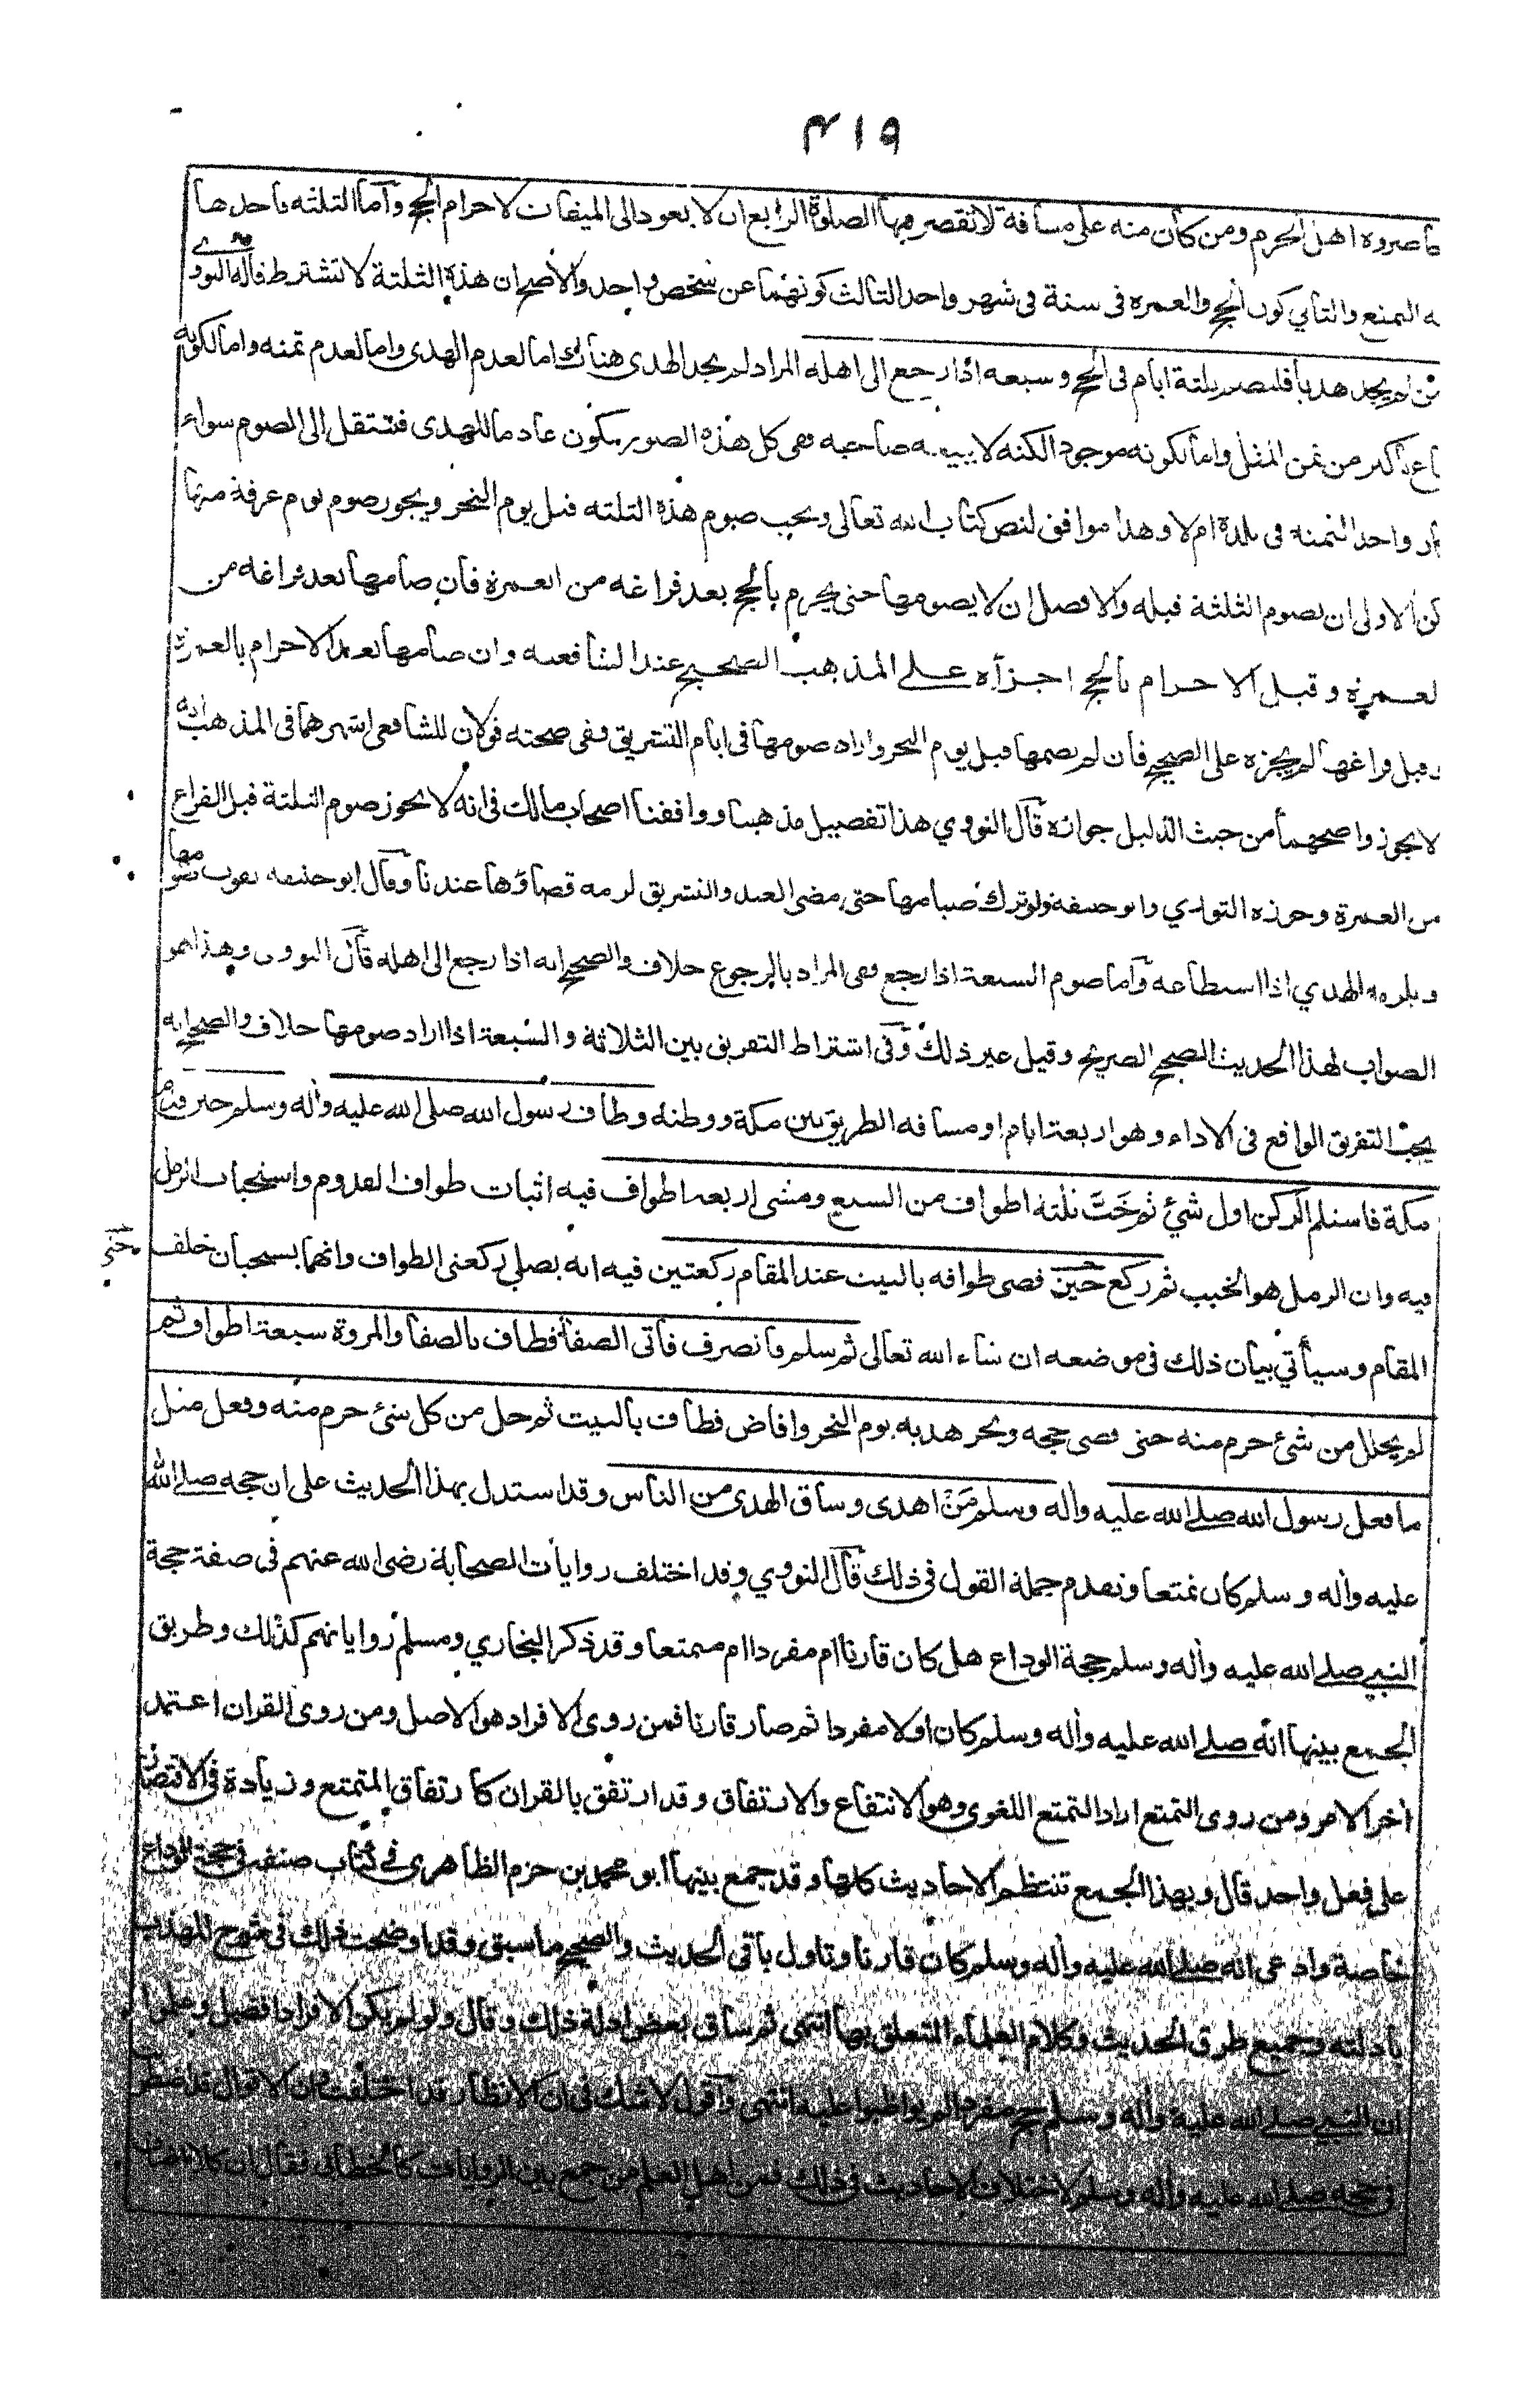 ٤١٩
حاصروه اهل الحرم ومن كان منه على مسافة لا تقصر فيها الصلوة الرابع ان لا يعود الى الميقات لاحرام الحج وآما الثلثه فاحدها
نية التمتع والثاني كون الحج والعمره فى سنة فى شهر واحد الثالث كونهما عن شخص واحد والاصح ان هذه الثلثة لا تشترط قاله النووي
فمن لم يجد هديا فليصم ثلثة ايام فى الحج وسبعه اذا رجع الى اهله المراد لم يجد الهدى هناك اما لعدم الهدى واما لعدم ثمنه واما لكونه
يباع باكثر من ثمن المثل واما لكونه موجودا لكنه لا يبيعه صاحبه ففى كل هذه الصور يكون عادما للهدى فينتقل الى الصوم سواء
كان واحدا لثمنه فى بلده ام لا وهذا موافق لنص كتاب الله تعالى ويجب صوم هذه الثلثه قبل يوم النحر ويجوز صوم يوم عرفة منها
لكن الاولى ان يصوم الثلثة قبله والافضل ان لا يصومها حتى يحرم بالحج بعد فراغه من العمرة فان صامها بعد فراغه من
العمرة وقبل الاحرام بالحج اجزأه على المذهب الصحيح عند الشافعيه وان صامها بعد الاحرام بالعمرة
وقبل فراغها لم يجزه على الصحيح فان لم يصمها قبل يوم النحر واراد صومها فى ايام التشريق ففى صحته قولان للشافعى اشهرهما فى المذهب انه
لا يجوز واصحهما من حيث الدليل جوازه قال النووي هذا تفصيل مذهبنا ووافقنا اصحاب مالك فى انه لا يجوز صوم الثلثة قبل الفراغ
من العمرة وجوزه الثوري وابو حنيفة ولو ترك صيامها حتى مضى العيد والتشريق لزمه قضاؤها عندنا وقال ابو حنيفه يفوت صومها
ويلزمه الهدي اذا استطاعه وآما صوم السبعة اذا رجع ففى المراد بالرجوع خلاف والصحيح انه اذا رجع الى اهله قال النووى وهذا هو
الصواب لهذا الحديث الصحيح الصريح وقيل غير ذلك وفى اشتراط التفريق بين الثلاثة والسبعة اذا اراد صومها خلاف والصحيح انه
يجب التفريق الواقع فى الاداء وهو اربعة ايام او مسافه الطريق بين مكة ووطنه وطاف رسول الله صلى الله عليه وأله وسلم حين قدم
مكة فاستلم الركن اول شئ ثم خَبَّ ثلثة اطواف من السبع ومشى اربعه اطواف فيه اثبات طواف القدوم واستحباب الرمل
فيه وان الرمل هو الخبب ثم ركع حين قضى طوافه بالبيت عند المقام ركعتين فيه انه يصلى ركعتى الطواف وانهما يستحبان خلف
حتى
المقام وسيأتي بيان ذلك فى موضعه ان شاء الله تعالى ثم سلم فانصرف فأتى الصفا فطاف بالصفا والمروة سبعة اطواف ثم
لم يحلل من شئ حرم منه حتى قضى حجه ونحر هديه يوم النحر وافاض فطاف بالبيت ثم حل من كل شئ حرم منه وفعل مثل
ما فعل رسول الله صلى الله عليه وأله وسلم مَنْ اهدى وساق الهدى من الناس وقد استدل بهذا الحديث على ان حجه صلى الله
عليه وأله وسلم كان تمتعا وتقدم جملة القول فى ذلك قال النووي وقد اختلف روايات الصحابة رضى الله عنهم فى صفة حجة
النبى صلى الله عليه وأله وسلم حجة الوداع هل كان قارنا ام مفردا ام متمتعا وقد ذكر البخاري ومسلم رواياتهم كذلك وطريق
الجمع بينها انّه صلى الله عليه وأله وسلم كان اولا مفردا ثم صار قارنا فمن روى الافراد هو الاصل ومن روى القران اعتمد
أخر الامر ومن روى التمتع اراد التمتع اللغوى وهو الانتفاع والارتفاق وقد ارتفق بالقران كارتفاق المتمتع وزيادة فى الاقتصار
على فعل واحد قال وبهذا الجمع تنتظم الاحاديث كلها وقد جمع بينها ابو محمد بن حزم الظاهرى فى كتاب صنفه فى حجة الوداع
خاصة وادعى انه صلى الله عليه وأله وسلم كان قارنا وتاول باقى الحديث والصحيح ما سبق وقد اوضحت ذلك فى شرح المهذب
بأدلته وجميع طرق الحديث وكلام العلماء المتعلق بها انتهى ثم ساق بعض ادلة ذلك وقال ولو لم يكن الافراد افضل وعلموا
ان النبى صلى الله عليه وأله وسلم حج مفردا لم يواظبوا عليه انتهى وآقول لا شك فى ان الانظار قد اختلفت وان الاقوال قد اضطربت
فى حجه صلى الله عليه وأله وسلم لاختلاف الاحاديث فى ذلك فمن اهل العلم من جمع بين الروايات كالخطابى فقال ان كلا اضاف